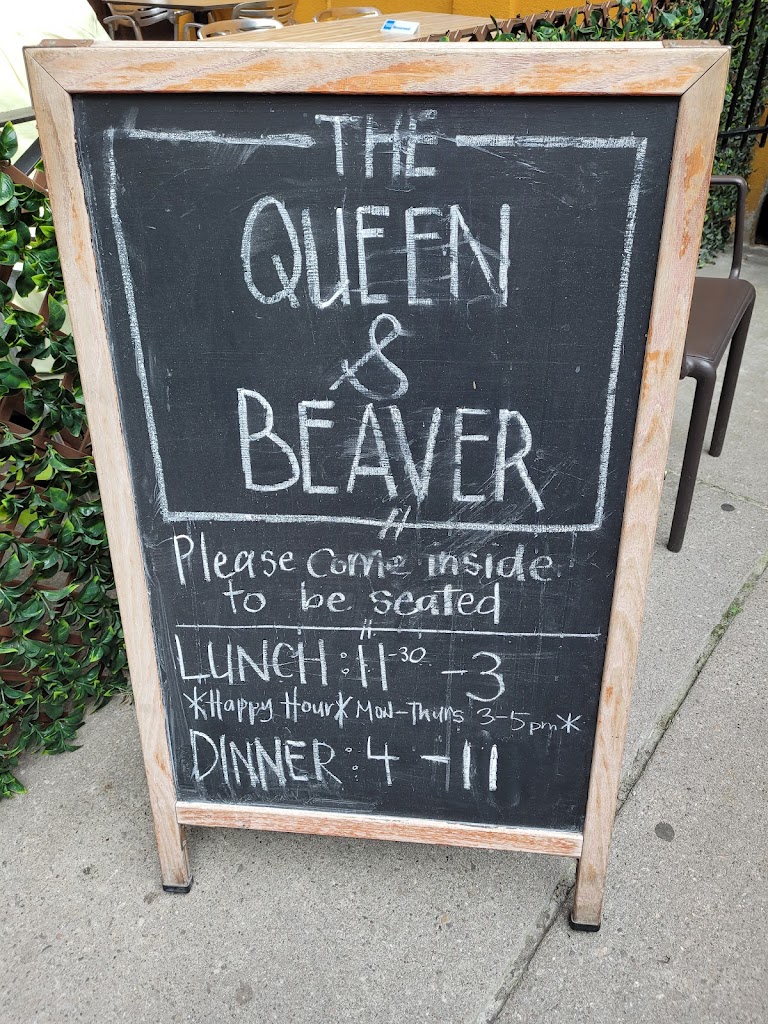 THE
QUEEN
&
BEAVER
Please come inside
to be seated
LUNCH : 11-30 - 3
*Happy Hour* Mon-Thurs 3-5pm*
DINNER : 4 - 11